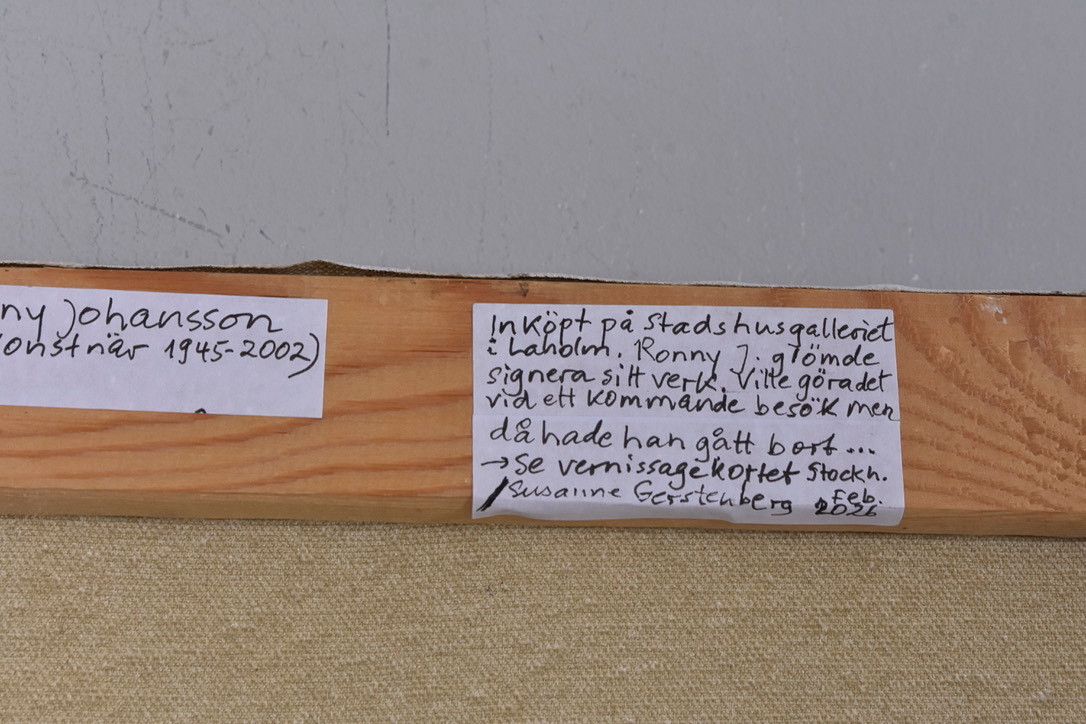 ny Johansson
onstnär 1945-2002)
Inköpt på Stadshusgalleriet
i Laholm. Ronny J. glömde
signera sitt verk. Ville göra det
vid ett kommande besök men
då hade han gått bort...
→ Se vernissagekortet Stockh.
/Susanne Gerstenberg Feb.
2026